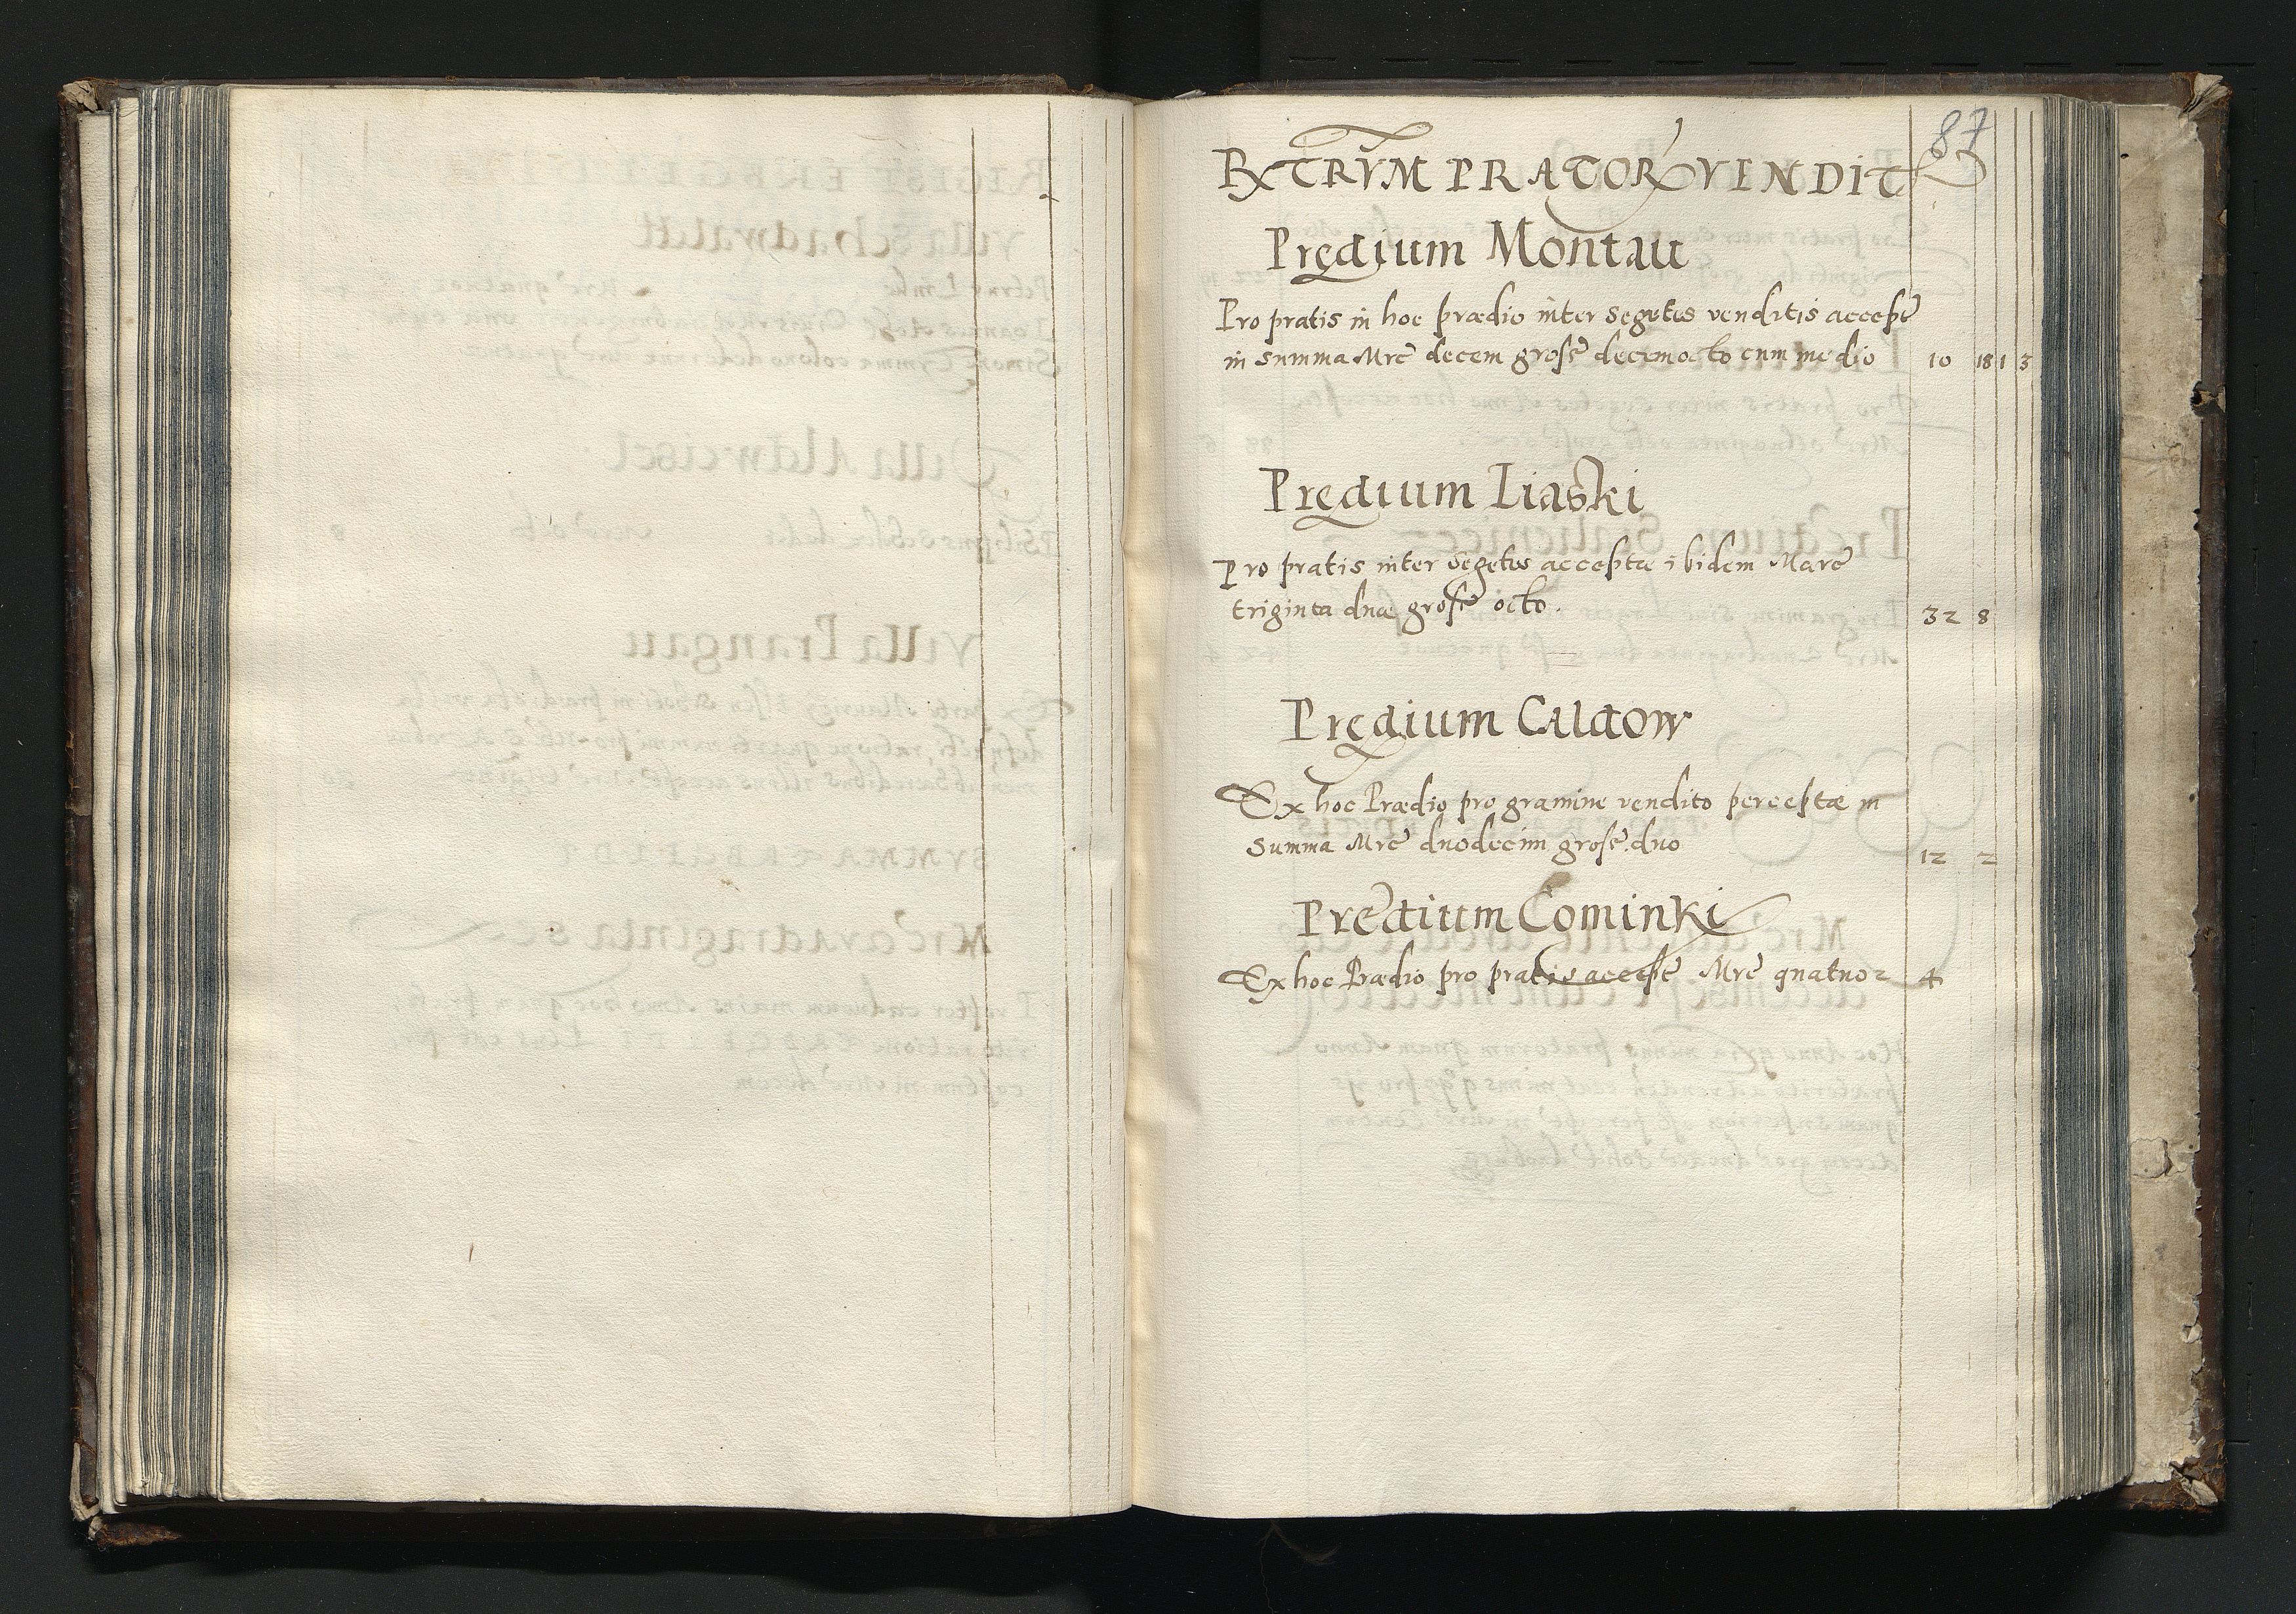 87
RXTRVM PRATORVENDIT
Prędium Montau
Pro pratis in hoc prædio inter segetes venditis accepte
in summa Mrc decem grosse decemocto cum medio 10 18 1 3
Prędium Liaski
Pro pratis inter segetes acceptæ ibidem Marc
triginta duæ grosse octo. 32 8
Prędium Caldow
Ex hoc Prædio pro gramine vendito perceptæ in
summa Mrc duodecim grosse. duo 12 2
Predium Cominki
Ex hoc Prædio pro pratis accepte Mrc quatuor 4